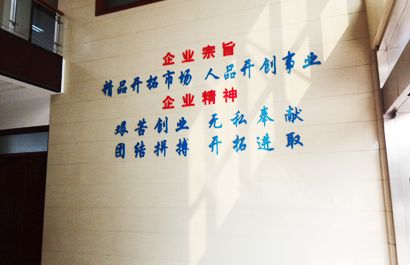 企业宗旨
精品开拓市场 人品开创事业
企业精神
艰苦创业 无私奉献
团结拼搏 开拓进取